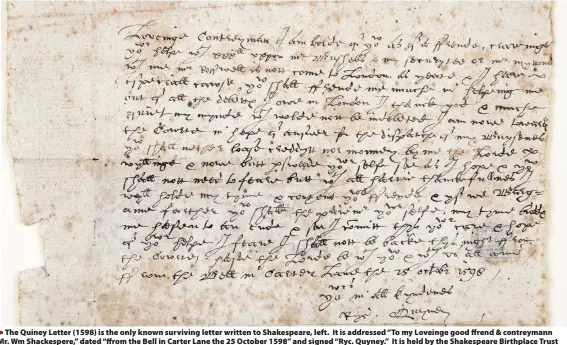 Loveinge Contreyman I am bolde of yow as of a ffrende, craveinge
yowr helpe wth xxxll uppon mr Bushells & my securytee or mr myttons
wth me mr Rosswell is nott come to London as yeate & I have
especiall cawse yow shall ffrende me muche in helpeing me
out of all the debtts I owe in London I thancke god & muche
quiet my mynde wch wolde nott be indebted I am nowe towards
the Cowrte in hope of answer for the dispatche of my Buysenes
yow shall nether loase creddytt nor monney by me the Lorde
wyllinge & nowe butt perswade yowr selfe soe as I hope & yow
shall nott need to feare butt wth all hartie thanckfullnes
I wyll holde my tyme & content yowr ffrende & yf we Barg=
aine farther yow shall be the paiemr yowr selfe my tyme bidds
me hasten to an ende & soe I comitt thys yowr care & hope
of yowr helpe I feare I shall nott be backe thys night ffrom
the Cowrte haste the Lorde be wth yow & wth us all amen
ffrom the Bell in Carter Lane the 25 octobr 1598
yowrs in all kyndenes
Ryc. Quyney
The Quiney Letter (1598) is the only known surviving letter written to Shakespeare, left. It is addressed “To my Loveinge good ffrend & contreymann
Mr. Wm Shackespere,” dated “ffrom the Bell in Carter Lane the 25 October 1598” and signed “Ryc. Quyney.” It is held by the Shakespeare Birthplace Trust